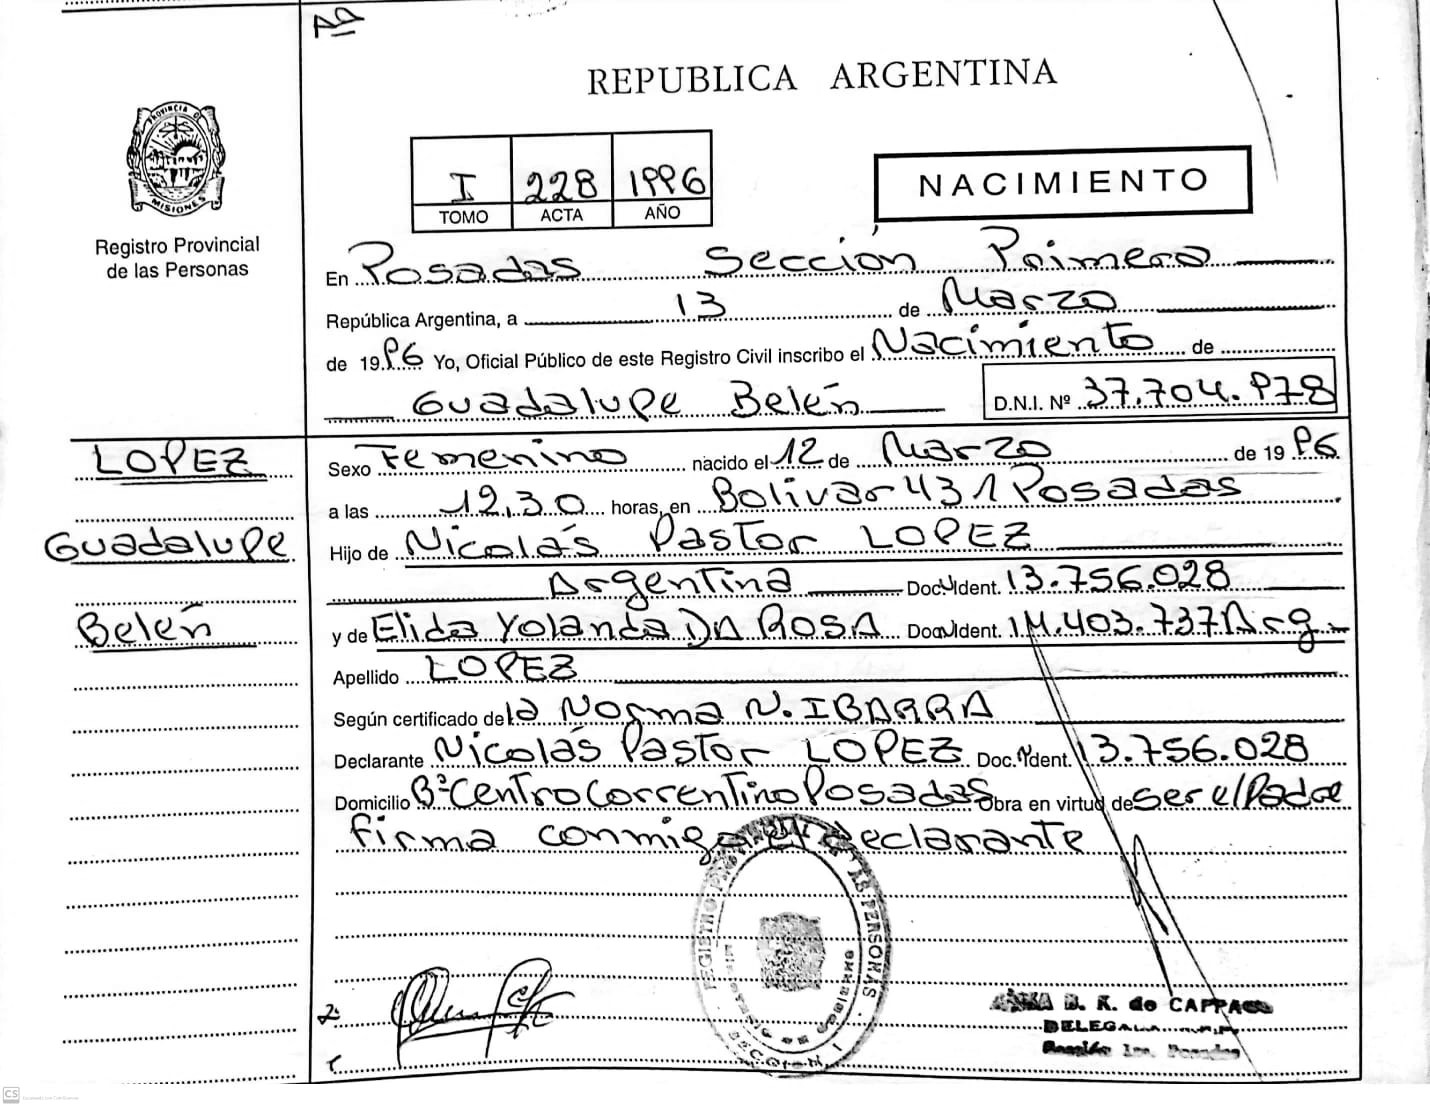 REPUBLICA ARGENTINA
PROVINCIA DE MISIONES
Registro Provincial
de las Personas
I 228 1996
TOMO ACTA AÑO
NACIMIENTO
En Posadas Sección Primera
República Argentina, a 13 de Marzo
de 1996 Yo, Oficial Público de este Registro Civil inscribo el Nacimiento de
Guadalupe Belén D.N.I. Nº 37.704.978
LOPEZ
Guadalupe
Belén
Sexo Femenino nacido el 12 de Marzo de 1996
a las 12,30 horas, en Bolivar 431 Posadas
Hijo de Nicolás Pastor LOPEZ
Argentina Doc. Ident. 13.756.028
y de Elida Yolanda DA ROSA Doc. Ident. 14.403.737 Arg.
Apellido LOPEZ
Según certificado de la Norma N. IBARRA
Declarante Nicolás Pastor LOPEZ Doc. Ident. 13.756.028
Domicilio Bº Centro Correntino Posadas Obra en virtud de ser el Padre
firma conmigo el declarante
REGISTRO LAS PERSONAS
B. K. de CAPPACO
DELEGADA
Sección 1ra. Posadas
CS